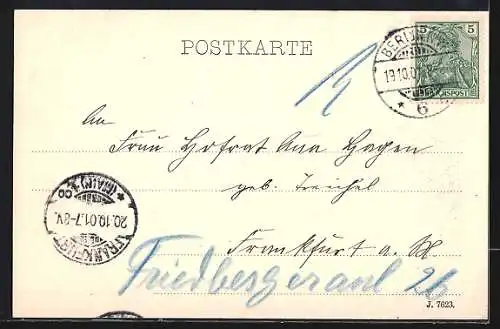 POSTKARTE
5 5
REICHSPOST
BERLIN
19.10.01
* 6
An
Frau Hofrat Ana Hagen
geb. Treichel
Frankfurt a. M
Friedbergeranl 26
FRANKFURT
20.10.01.7-8V.
* (MAIN) * 8
J. 7623.